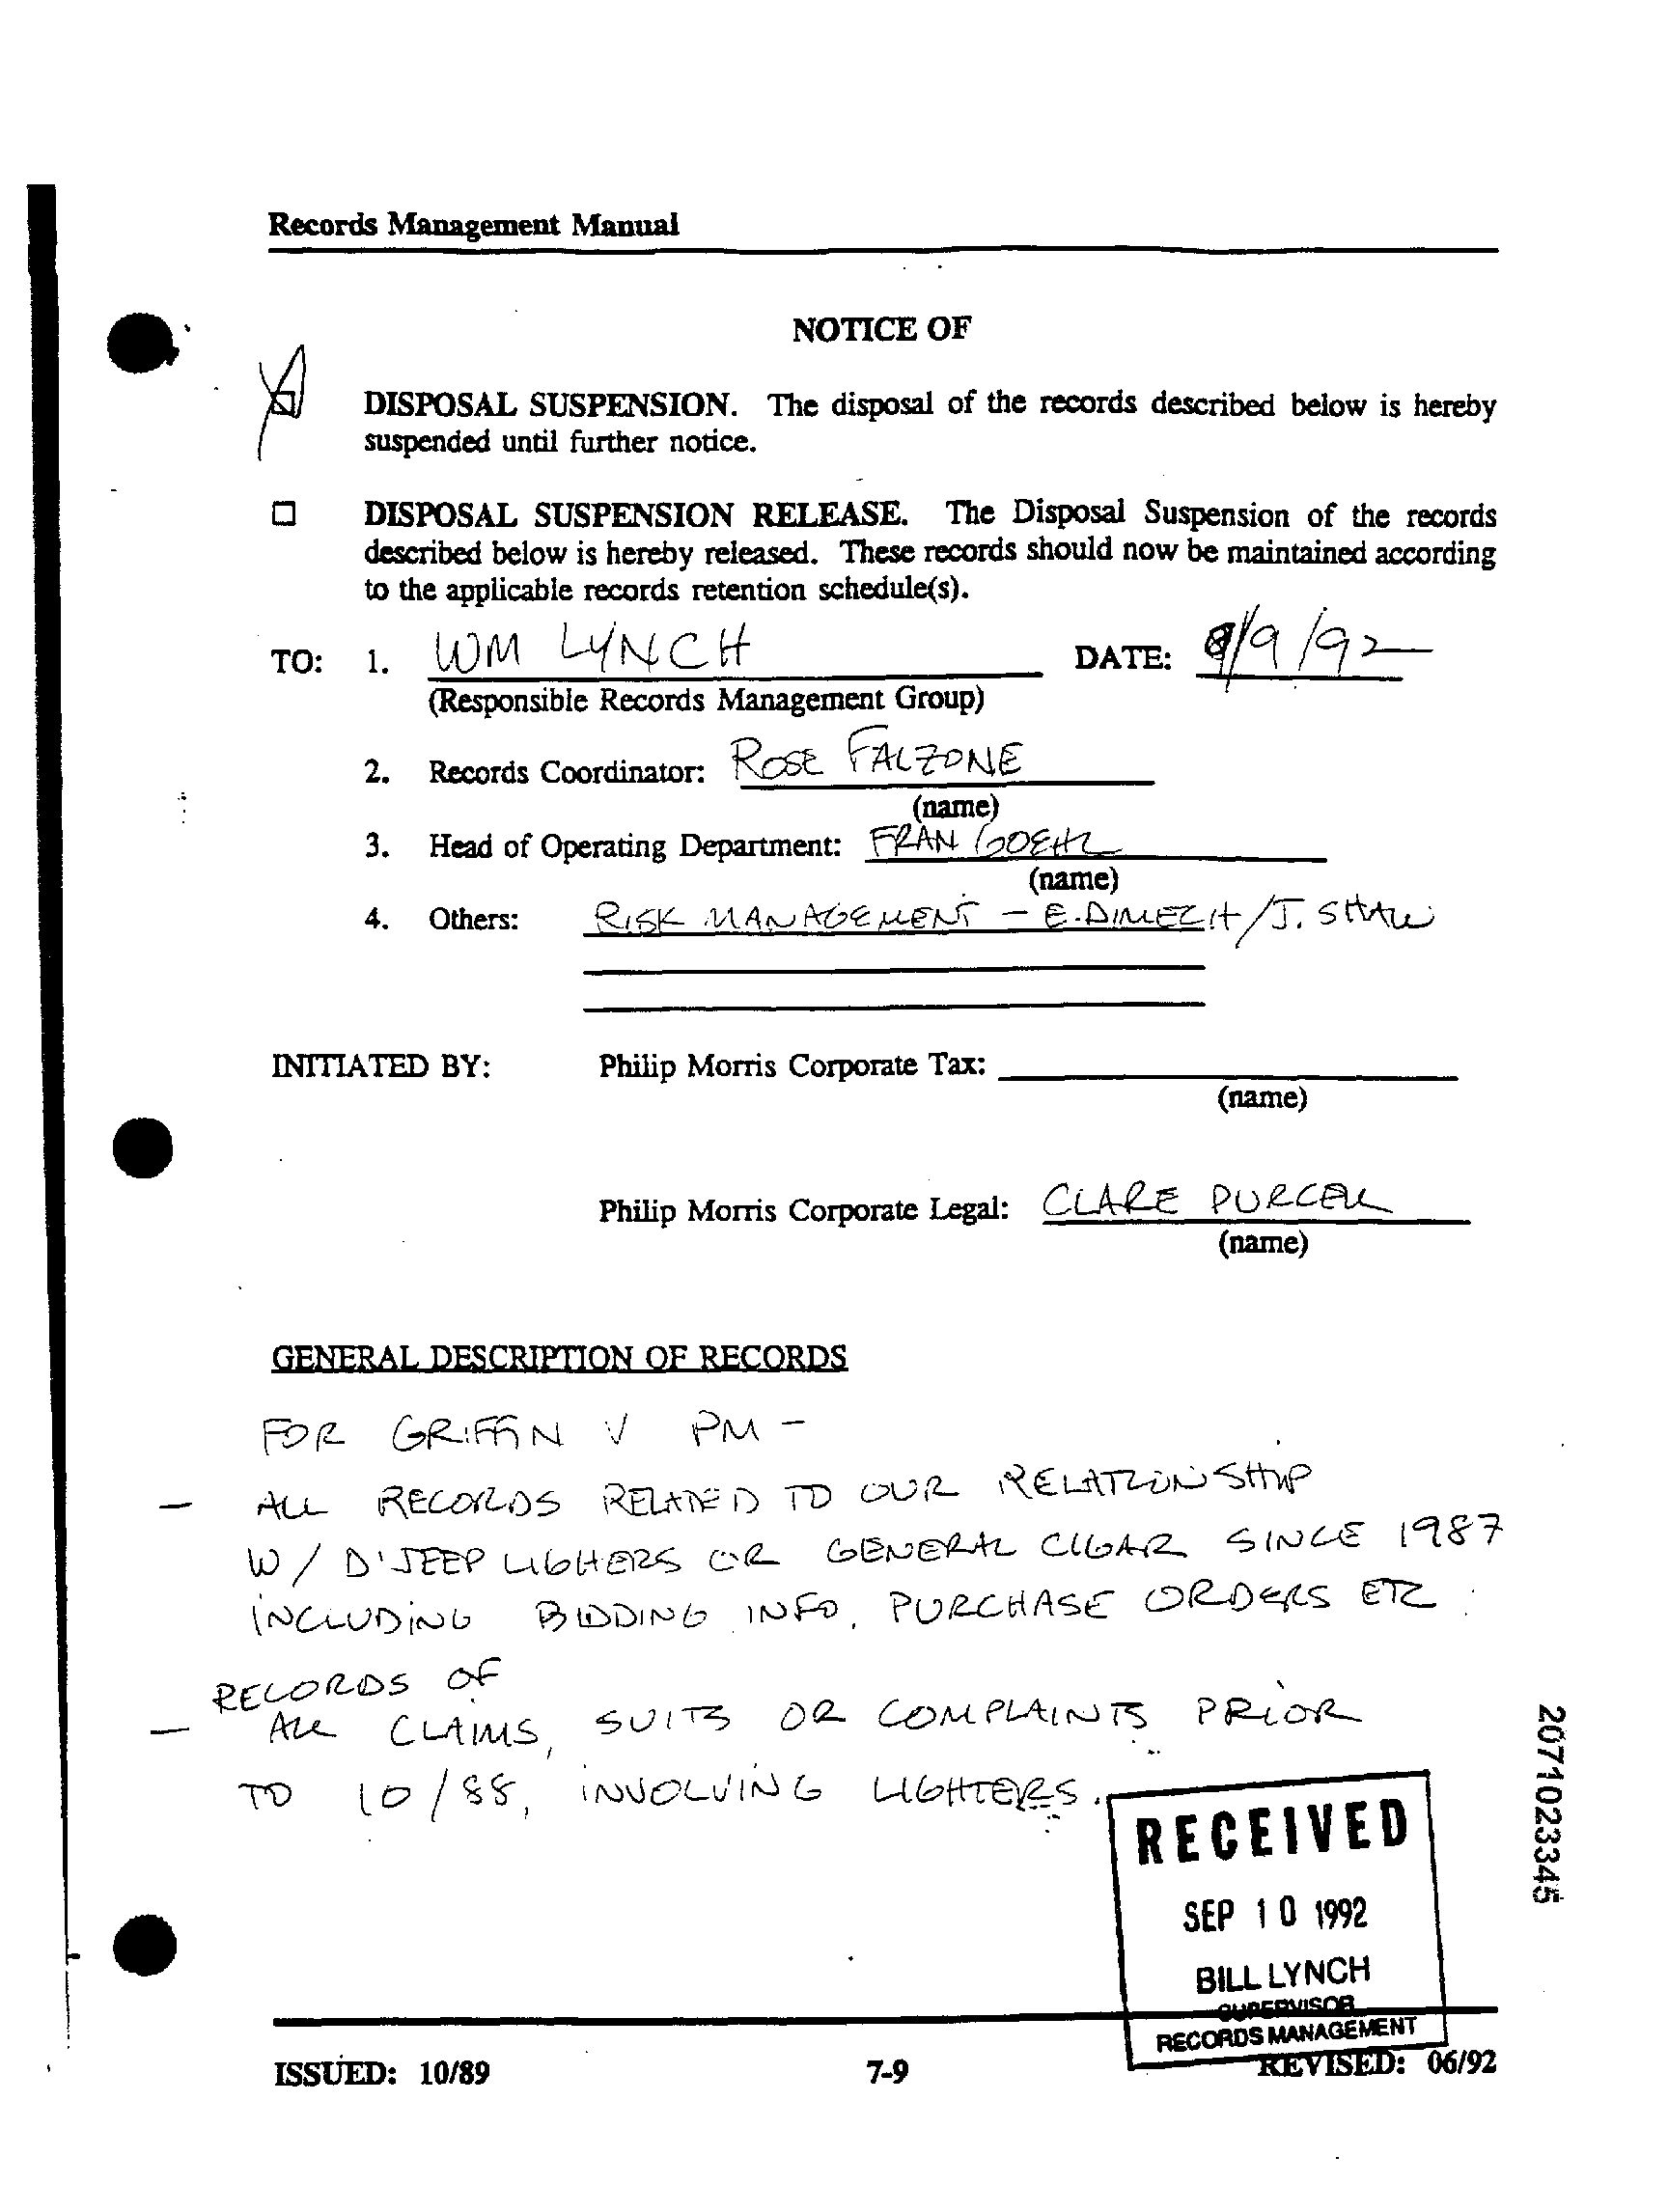 Records Management Manual
NOTICE OF
DISPOSAL SUSPENSION. The disposal of the records described below is hereby
suspended until further notice.
DISPOSAL SUSPENSION RELEASE. The Disposal Suspension of the records
described below is hereby released. These records should now be maintained according
to the applicable records retention schedule(s).
TO: 1. WM LYNCH DATE: 9/9/92
(Responsible Records Management Group)
2. Records Coordinator: ROSE FALZONE
(name)
3. Head of Operating Department: FRAN GOEHL
(name)
4. Others: RISK MANAGEMENT - E. DIMECH/J. SHAW
INITIATED BY: Philip Morris Corporate Tax:
(name)
Philip Morris Corporate Legal: CLARE PURCELL
(name)
GENERAL DESCRIPTION OF RECORDS
FOR GRIFFIN V PM -
- ALL RECORDS RELATED TO OUR RELATIONSHIP
W/ D'JEEP LIGHERS OR GENERAL CIGAR SINCE 1987
INCLUDING BIDDING INFO, PURCHASE ORDERS ETC.
RECORDS OF
- ALL CLAIMS, SUITS OR COMPLAINTS PRIOR
TO 10/88, INVOLVING LIGHTERS.
RECEIVED
SEP 10 1992
BILL LYNCH
SUPERVISOR
RECORDS MANAGEMENT
2071023345
ISSUED: 10/89 7-9 REVISED: 06/92